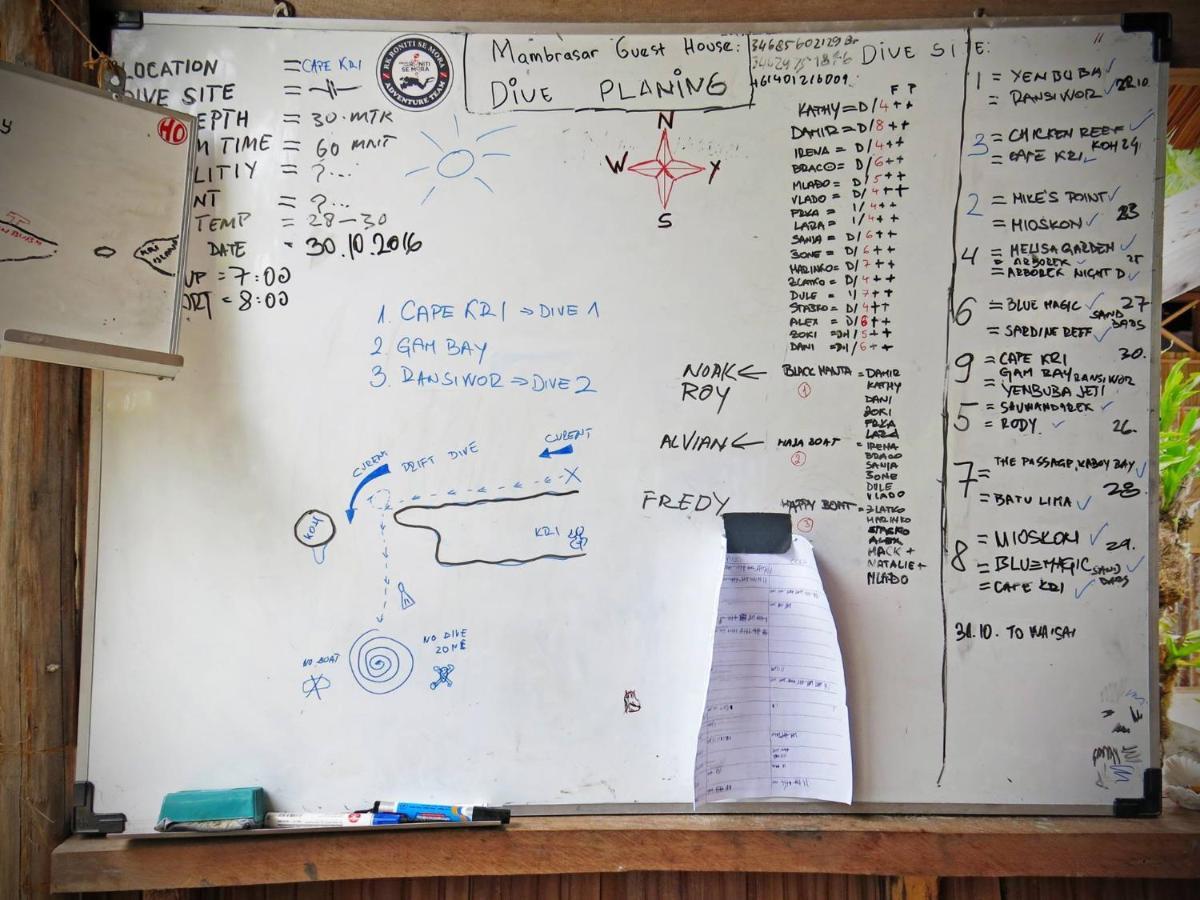 LOCATION = CAPE KRI
DIVE SITE =
EPTH = 30.MTR
M TIME = 60 MNT
LITIY = ?...
NT = ?...
TEMP = 28-30
DATE = 30.10.2016
UP = 7:00
ORT = 8:00
HO
RK RONITI SE MORA
RONITI SE MORA
ADVENTURE TEAM
Mambrasar Guest House:
DIVE PLANING
N
W Y
S
1. CAPE KRI ⇒ DIVE 1
2 GAM BAY
3. RANSIWOR ⇒ DIVE 2
CURENT
DRIFT DIVE
CURENT
X
KOH
KRI
NO BOAT
NO DIVE ZONE
F T
KATHY = D/4++
DAMIR = D/8++
IRENA = D/4++
BRACO = D/6++
MLADO = D/5++
VLADO = D/4++
PRKA = 1/4++
LARA = 1/4++
SANJA = D/6++
ZONE = D/6++
MARINKO = D/7++
ZLATKO = D/4++
DULE = 1/7++
STASKO = D/4++
ALEX = D/6++
ZOKI = DM/5++
DANI = DM/6++
NOAK ← BLACK MANTA = DAMIR
ROY
1
KATHY
DANI
ZOKI
PRKA
LARA
ALVIAN ← MAJA BOAT = IRENA
2
BRACO
SANJA
ZONE
DULE
VLADO
FREDY HAPPY BOAT = ZLATKO
3
MARINKO
STASKO
ALEX
MACK +
NATALIE +
MLADO
DIVE SITE:
1 = YENBUBA ✓
= RANSIWOR ✓ 22.10
3 = CHICKEN REEF ✓
= CAPE KRI ✓ KOH 24.
2 = MIKE'S POINT ✓
= MIOSKON ✓ 23
4 = MELISA GARDEN ✓
= ARBOREK ✓ 25
= ARBOREK NIGHT D ✓
6 = BLUE MAGIC ✓ 27
SAND BARS
= SARDINE REEF ✓
9 = CAPE KRI 30.
= GAM BAY RANSIWOR
YENBUBA JETI
5 = SAUWANDAREK ✓
= RODY ✓ 26.
7 = THE PASSAGE, KABOY BAY ✓
= BATU LIMA ✓ 28
8 = MIOSKON ✓ 29.
= BLUEMAGIC SAND BARS ✓
= CAPE KRI ✓
31.10. TO WAISAI